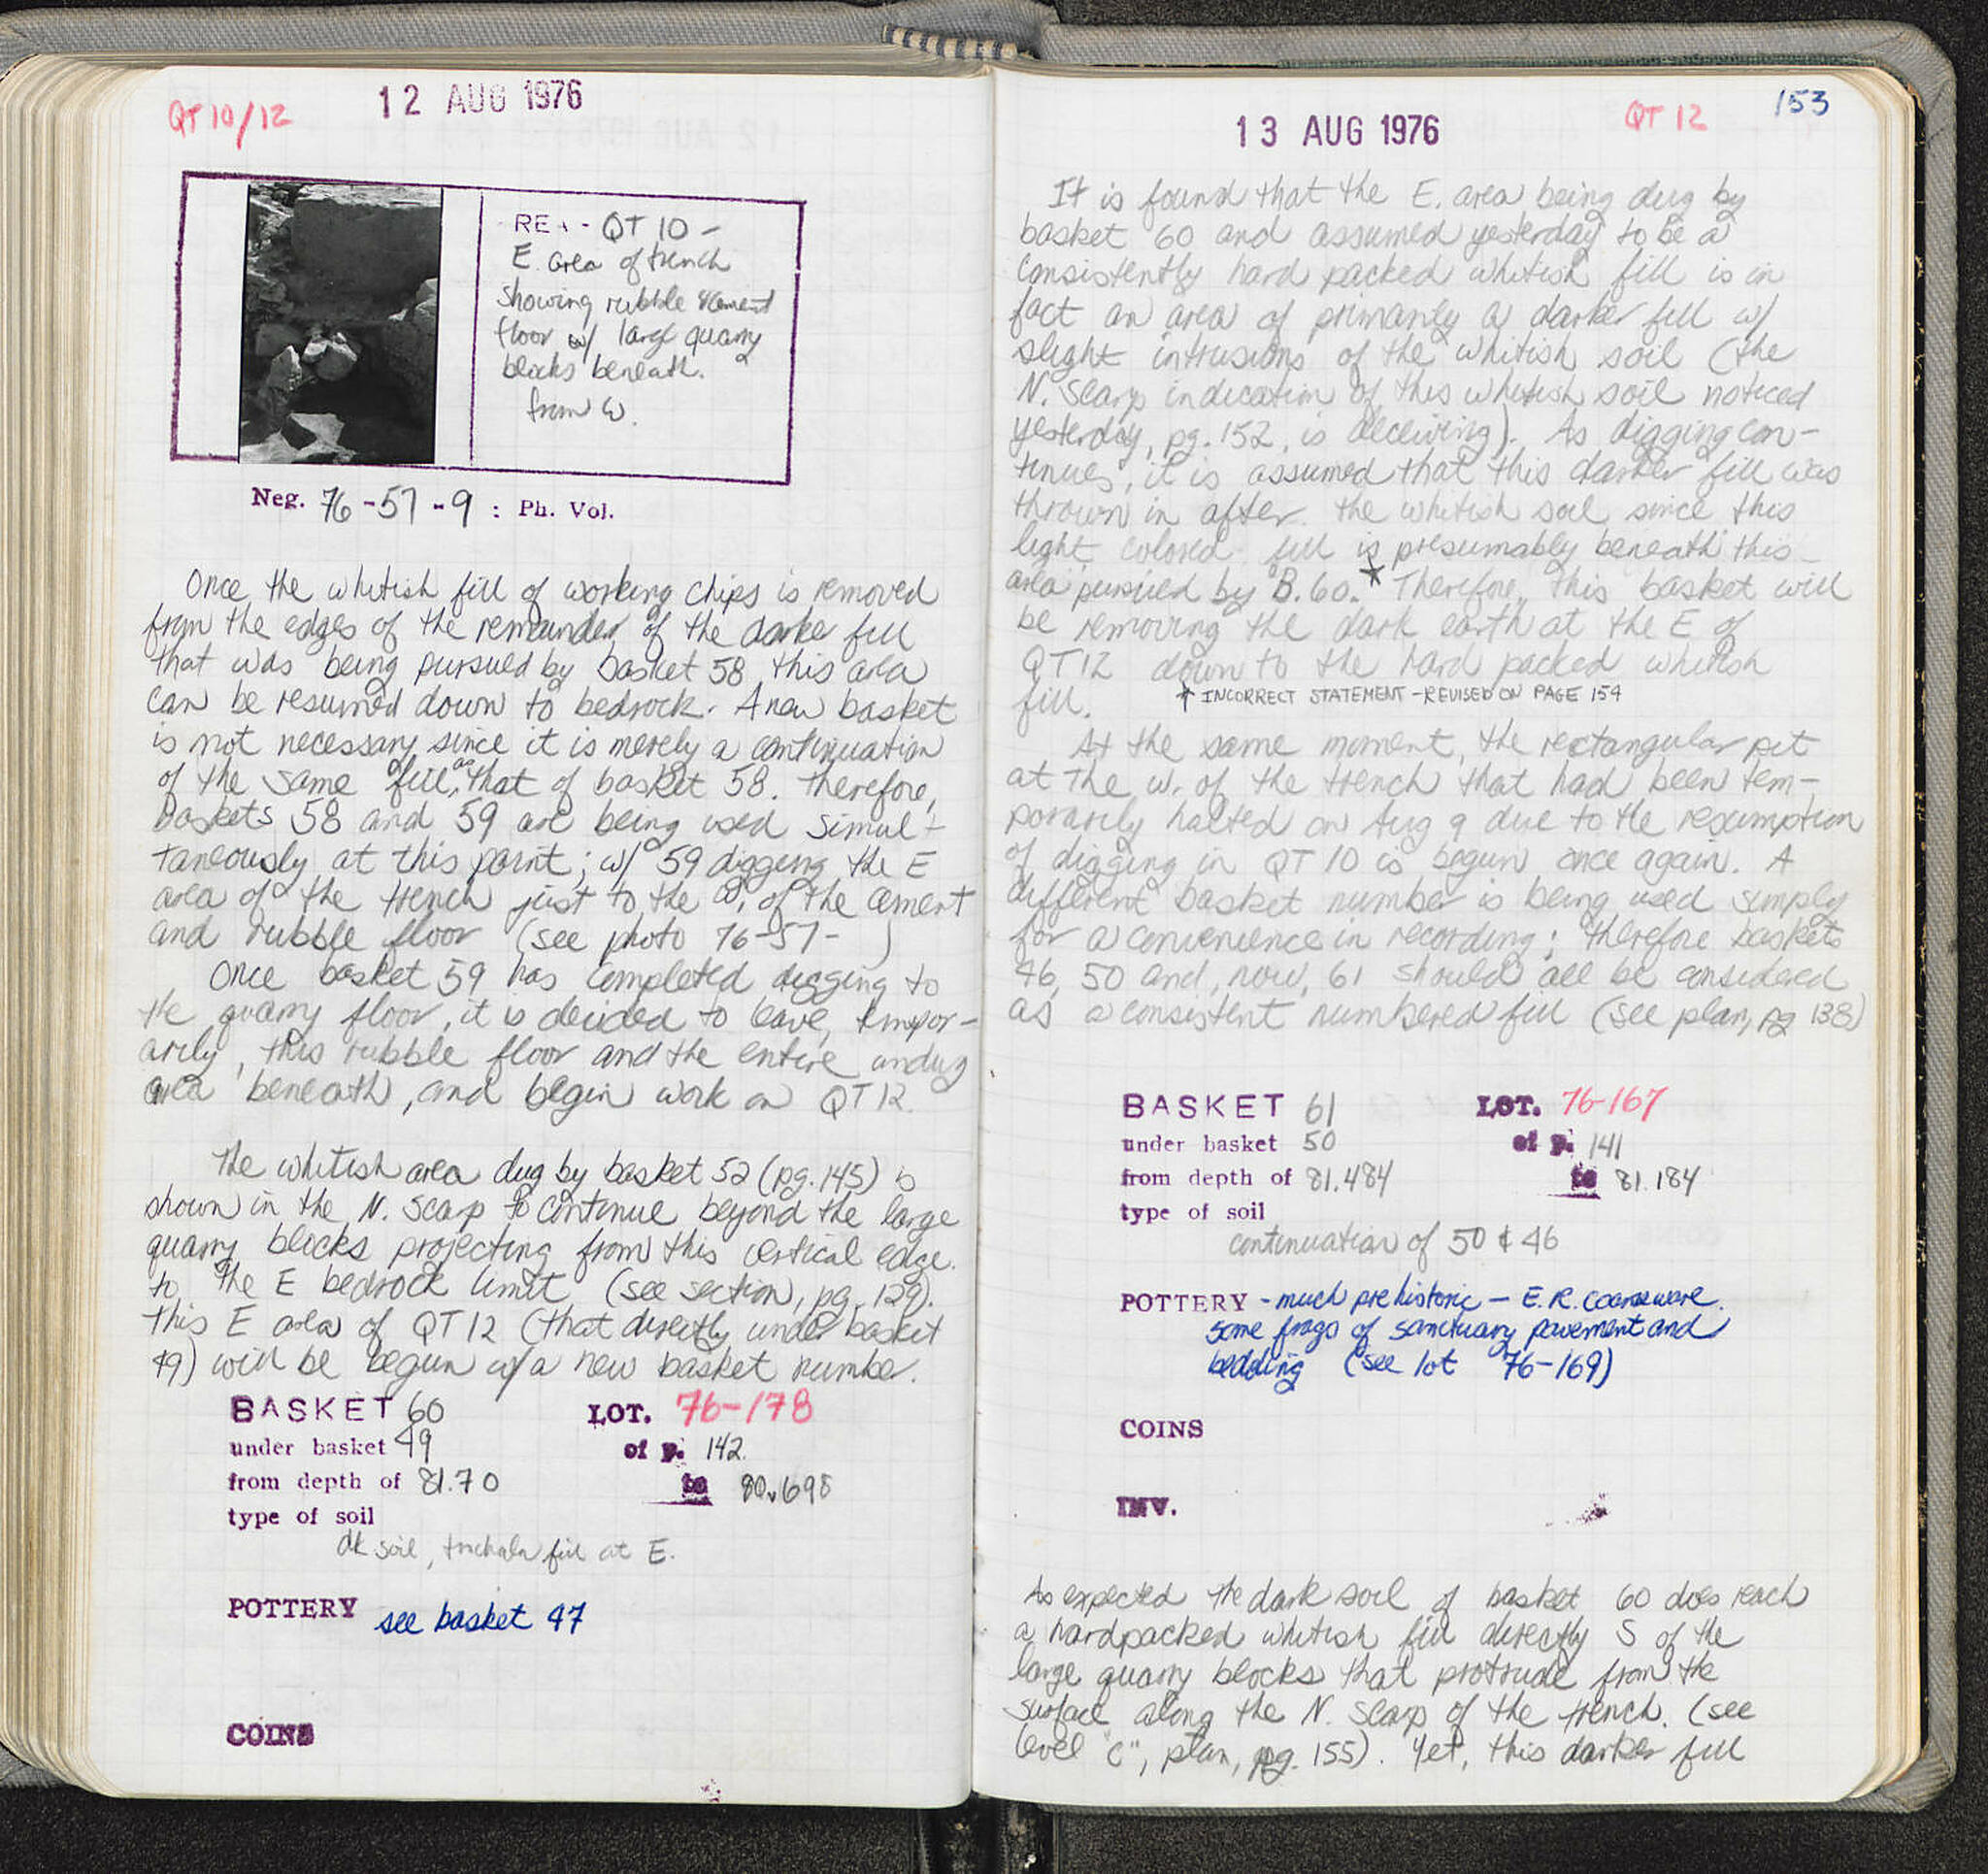 QT 10/12
12 AUG 1976
RE - QT 10 -
E. area of trench
showing rubble cement
floor w/ large quarry
blocks beneath.
from W.
Neg. 76-57-9 : Ph. Vol.
Once the whitish fill of working chips is removed
from the edges of the remainder of the darker fill
that was being pursued by basket 58, this area
can be resumed down to bedrock. A new basket
is not necessary since it is merely a continuation
of the same fill, as that of basket 58. Therefore,
baskets 58 and 59 are being used simul-
taneously at this point; w/ 59 digging the E
area of the trench just to the W. of the cement
and rubble floor (see photo 76-57- )
Once basket 59 has completed digging to
the quarry floor, it is decided to leave, tempor-
arily, this rubble floor and the entire undug
area beneath, and begin work on QT 12.
The whitish area dug by basket 52 (pg. 145) is
shown in the N. scarp to continue beyond the large
quarry blocks projecting from this vertical edge
to the E bedrock limit (see section, pg. 129).
This E area of QT 12 (that directly under basket
49) will be begun w/ a new basket number.
BASKET 60 LOT. 76-178
under basket 49 of p. 142
from depth of 81.70 to 80.698
type of soil
dk soil, fill at E.
POTTERY see basket 47
COINS
153
QT 12
13 AUG 1976
It is found that the E. area being dug by
basket 60 and assumed yesterday to be a
consistently hard packed whitish fill is in
fact an area of primarily a darker fill w/
slight intrusions of the whitish soil (the
N. scarp indication of this whitish soil noticed
yesterday, pg. 152, is deceiving). As digging con-
tinues, it is assumed that this darker fill was
thrown in after the whitish soil since this
light colored fill is presumably beneath this
area pursued by B. 60.* Therefore, this basket will
be removing the dark earth at the E of
QT 12 down to the hard packed whitish
fill. * INCORRECT STATEMENT - REVISED ON PAGE 154
At the same moment, the rectangular pit
at the W. of the trench that had been tem-
porarily halted on Aug 9 due to the resumption
of digging in QT 10 is begun once again. A
different basket number is being used simply
for a convenience in recording; therefore baskets
46, 50 and, now, 61 should all be considered
as a consistent numbered fill (see plan, pg 138)
BASKET 61 LOT. 76-167
under basket 50 of p. 141
from depth of 81.484 to 81.184
type of soil
continuation of 50 & 46
POTTERY - much prehistoric - E.R. coarseware.
some frags of sanctuary pavement and
bedding (see lot 76-169)
COINS
INV.
As expected the dark soil of basket 60 does reach
a hardpacked whitish fill directly S of the
large quarry blocks that protrude from the
surface along the N. scarp of the trench. (see
level "C", plan, pg. 155). Yet, this darker fill